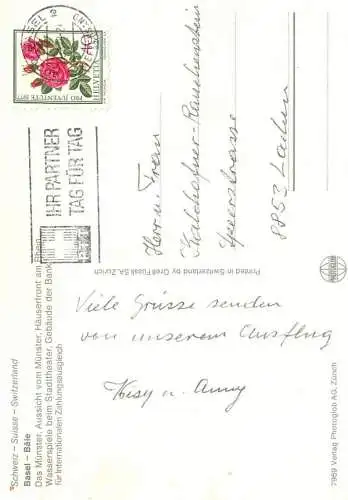 Schweiz – Suisse – Switzerland
Basel – Bâle
Das Münster, Aussicht vom Münster, Häuserfront am Rhein,
Wasserspiele beim Stadttheater, Gebäude der Bank
für Internationalen Zahlungsausgleich
Viele Grüsse senden
von unserem Ausflug
u. Anny
7969 Verlag Photoglob AG, Zürich
Printed in Switzerland by Orell Füssli SA, Zürich
BASEL 2
IHR PARTNER
TAG FÜR TAG
HELVETIA
PRO JUVENTUTE 1977
Herr u. Frau
Speerstrasse
8853 Lachen